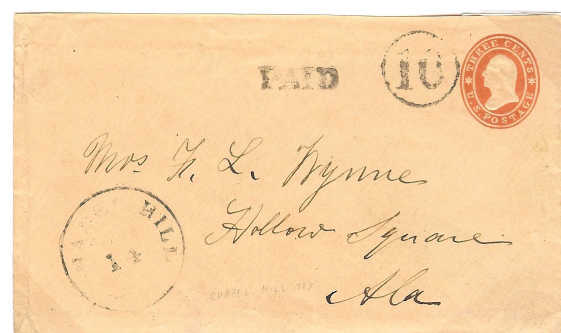 PAID
10
THREE CENTS
U.S. POSTAGE
Mrs. K. L. Wynne
Hollow Square
Ala
HILL
14
CHAPEL HILL TEX